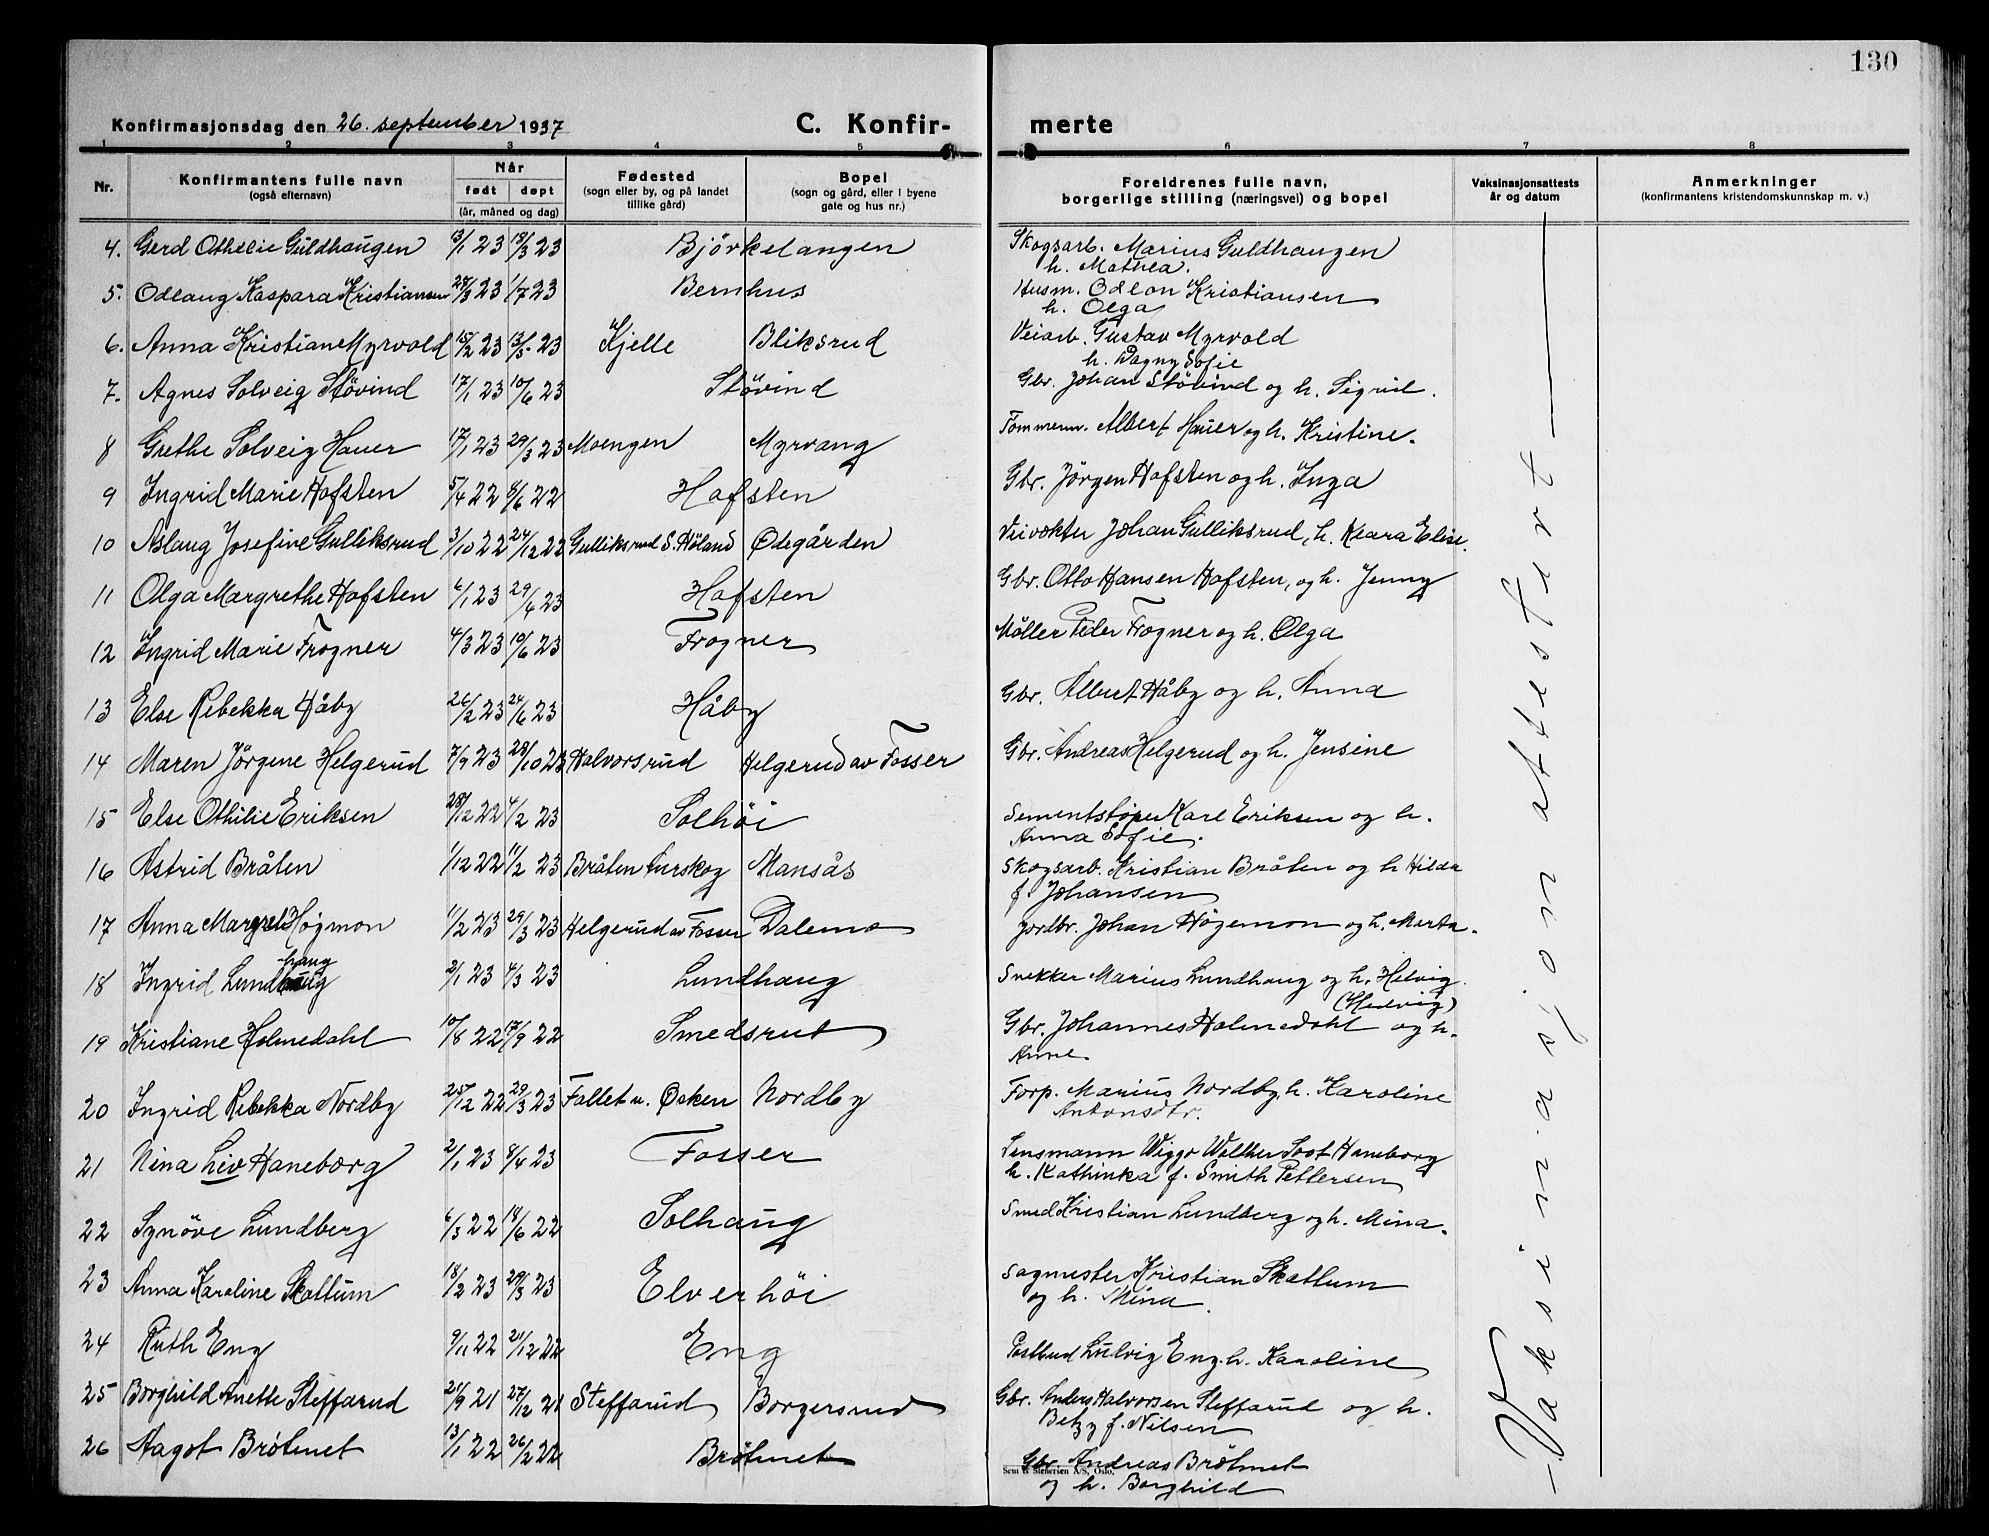 130
Konfirmasjonsdag den 26. september 1937 C. Konfir- merte
1 2 3 4 5 6 7 8
Nr. Konfirmantens fulle navn (også efternavn) Når født døpt (år, måned og dag) Fødested (sogn eller by, og på landet tillike gård) Bopel (sogn og gård, eller i byene gate og hus nr.) Foreldrenes fulle navn, borgerlige stilling (næringsvei) og bopel Vaksinasjonsattests år og datum Anmerkninger (konfirmantens kristendomskunnskap m. v.)
4. Gerd Othelie Guldhaugen 13/1 23 18/3 23 Bjørkelangen Skogsarb. Marius Guldhaugen
h. Mathea.
5. Odlaug Kaspara Kristiansen 28/3 23 1/7 23 Bernhus Husm. Odlon Kristiansen
h. Olga
6. Anna Kristiane Myrvold 15/2 23 13/5 23 Kjelle Bliksrud Veiarb. Gustav Myrvold
h. Dagny Sofie
7. Agnes Solveig Støvind 17/1 23 10/6 23 Støvind Gbr. Johan Støvind og h. Sigrid.
8 Grethe Solveig Hauer 17/1 23 29/3 23 Moengen Myrvang Tømmerm. Albert Hauer og h. Kristine.
9 Ingrid Marie Hofsten 5/4 22 8/6 22 Hofsten Gbr. Jörgen Hofsten og h. Inga
10 Aslaug Josefine Gulliksrud 3/10 22 24/12 22 Gulliksrud S. Höland Ødegården Veivokter Johan Gulliksrud, h. Klara Elise.
11 Olga Margrethe Hofsten 6/1 23 29/4 23 Hofsten Gbr. Otto Hansen Hofsten, og h. Jenny
12 Ingrid Marie Frogner 4/3 23 10/6 23 Frogner Möller Peder Frogner og h. Olga
13 Else Rebekka Håby 26/2 23 24/6 23 Håby Gbr. Albert Håby og h. Anna
14 Maren Jörgene Helgerud 7/9 23 28/10 23 Halvorsrud Helgerud av Fosser Gbr. Andreas Helgerud og h. Jensine
15 Else Othilie Eriksen 28/12 22 4/2 23 Solhöi Sementstøper Karl Eriksen og h.
Anna Sofie.
16 Astrid Bråten 1/12 22 11/2 23 Bråten Aurskog Mansås Skogsarb. Kristian Bråten og h Hilda
f. Johansen
17 Anna Margrete Högmon 11/2 23 29/3 23 Helgerud av Fosser Dalemo Jordbr. Johan Högemon og h. Marta.
haug
18 Ingrid Lundhaug 2/1 23 4/3 23 Lundhaug Snekker Marius Lundhaug og h. Helvig.
(Hedvig)
19 Kristiane Holmedahl 10/8 22 17/9 22 Smedsrud Gbr. Johannes Holmedahl og h.
Anne.
20 Ingrid Rebekka Nordby 25/12 22 29/3 23 Fallet u. Ösken Nordby Forp. Marius Nordby, h. Karoline
Antonsdtr.
21 Nina Liv Haneborg 2/1 23 8/4 23 Fosser Lensmann Wiggo Walther Soot Haneborg
h. Kathinka f. Smith Pettersen
22 Synöve Lundberg 6/3 22 18/6 22 Solhaug Smed Kristian Lundberg og h. Mina.
23 Anna Karoline Skattum 18/2 23 29/3 23 Elverhöi Sagmester Kristian Skattum
og h. Mina.
24 Ruth Eng 9/11 22 21/12 22 Eng Postbud Ludvig Eng. h. Karoline
25 Borghild Anette Steffarud 21/9 21 27/12 21 Steffarud Borgersrud Gbr. Anders Halvorsen Steffarud og h.
Betzy f. Nilsen
26 Aagot Brötmet 13/1 22 26/2 22 Brötmet Gbr. Andreas Brötmet
Sem & Stenersen A/S, Oslo.
og h. Borghild
– Vaksinasjon attestert –